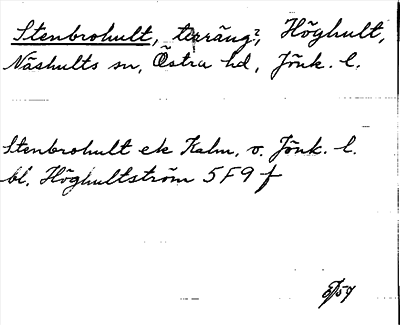 Stenbrohult, terräng?, Höghult,
Näshults sn, Östra hd, Jönk. l.
Stenbrohult ek Kalm, v. Jönk. l.
bl. Höghultström 5F9f